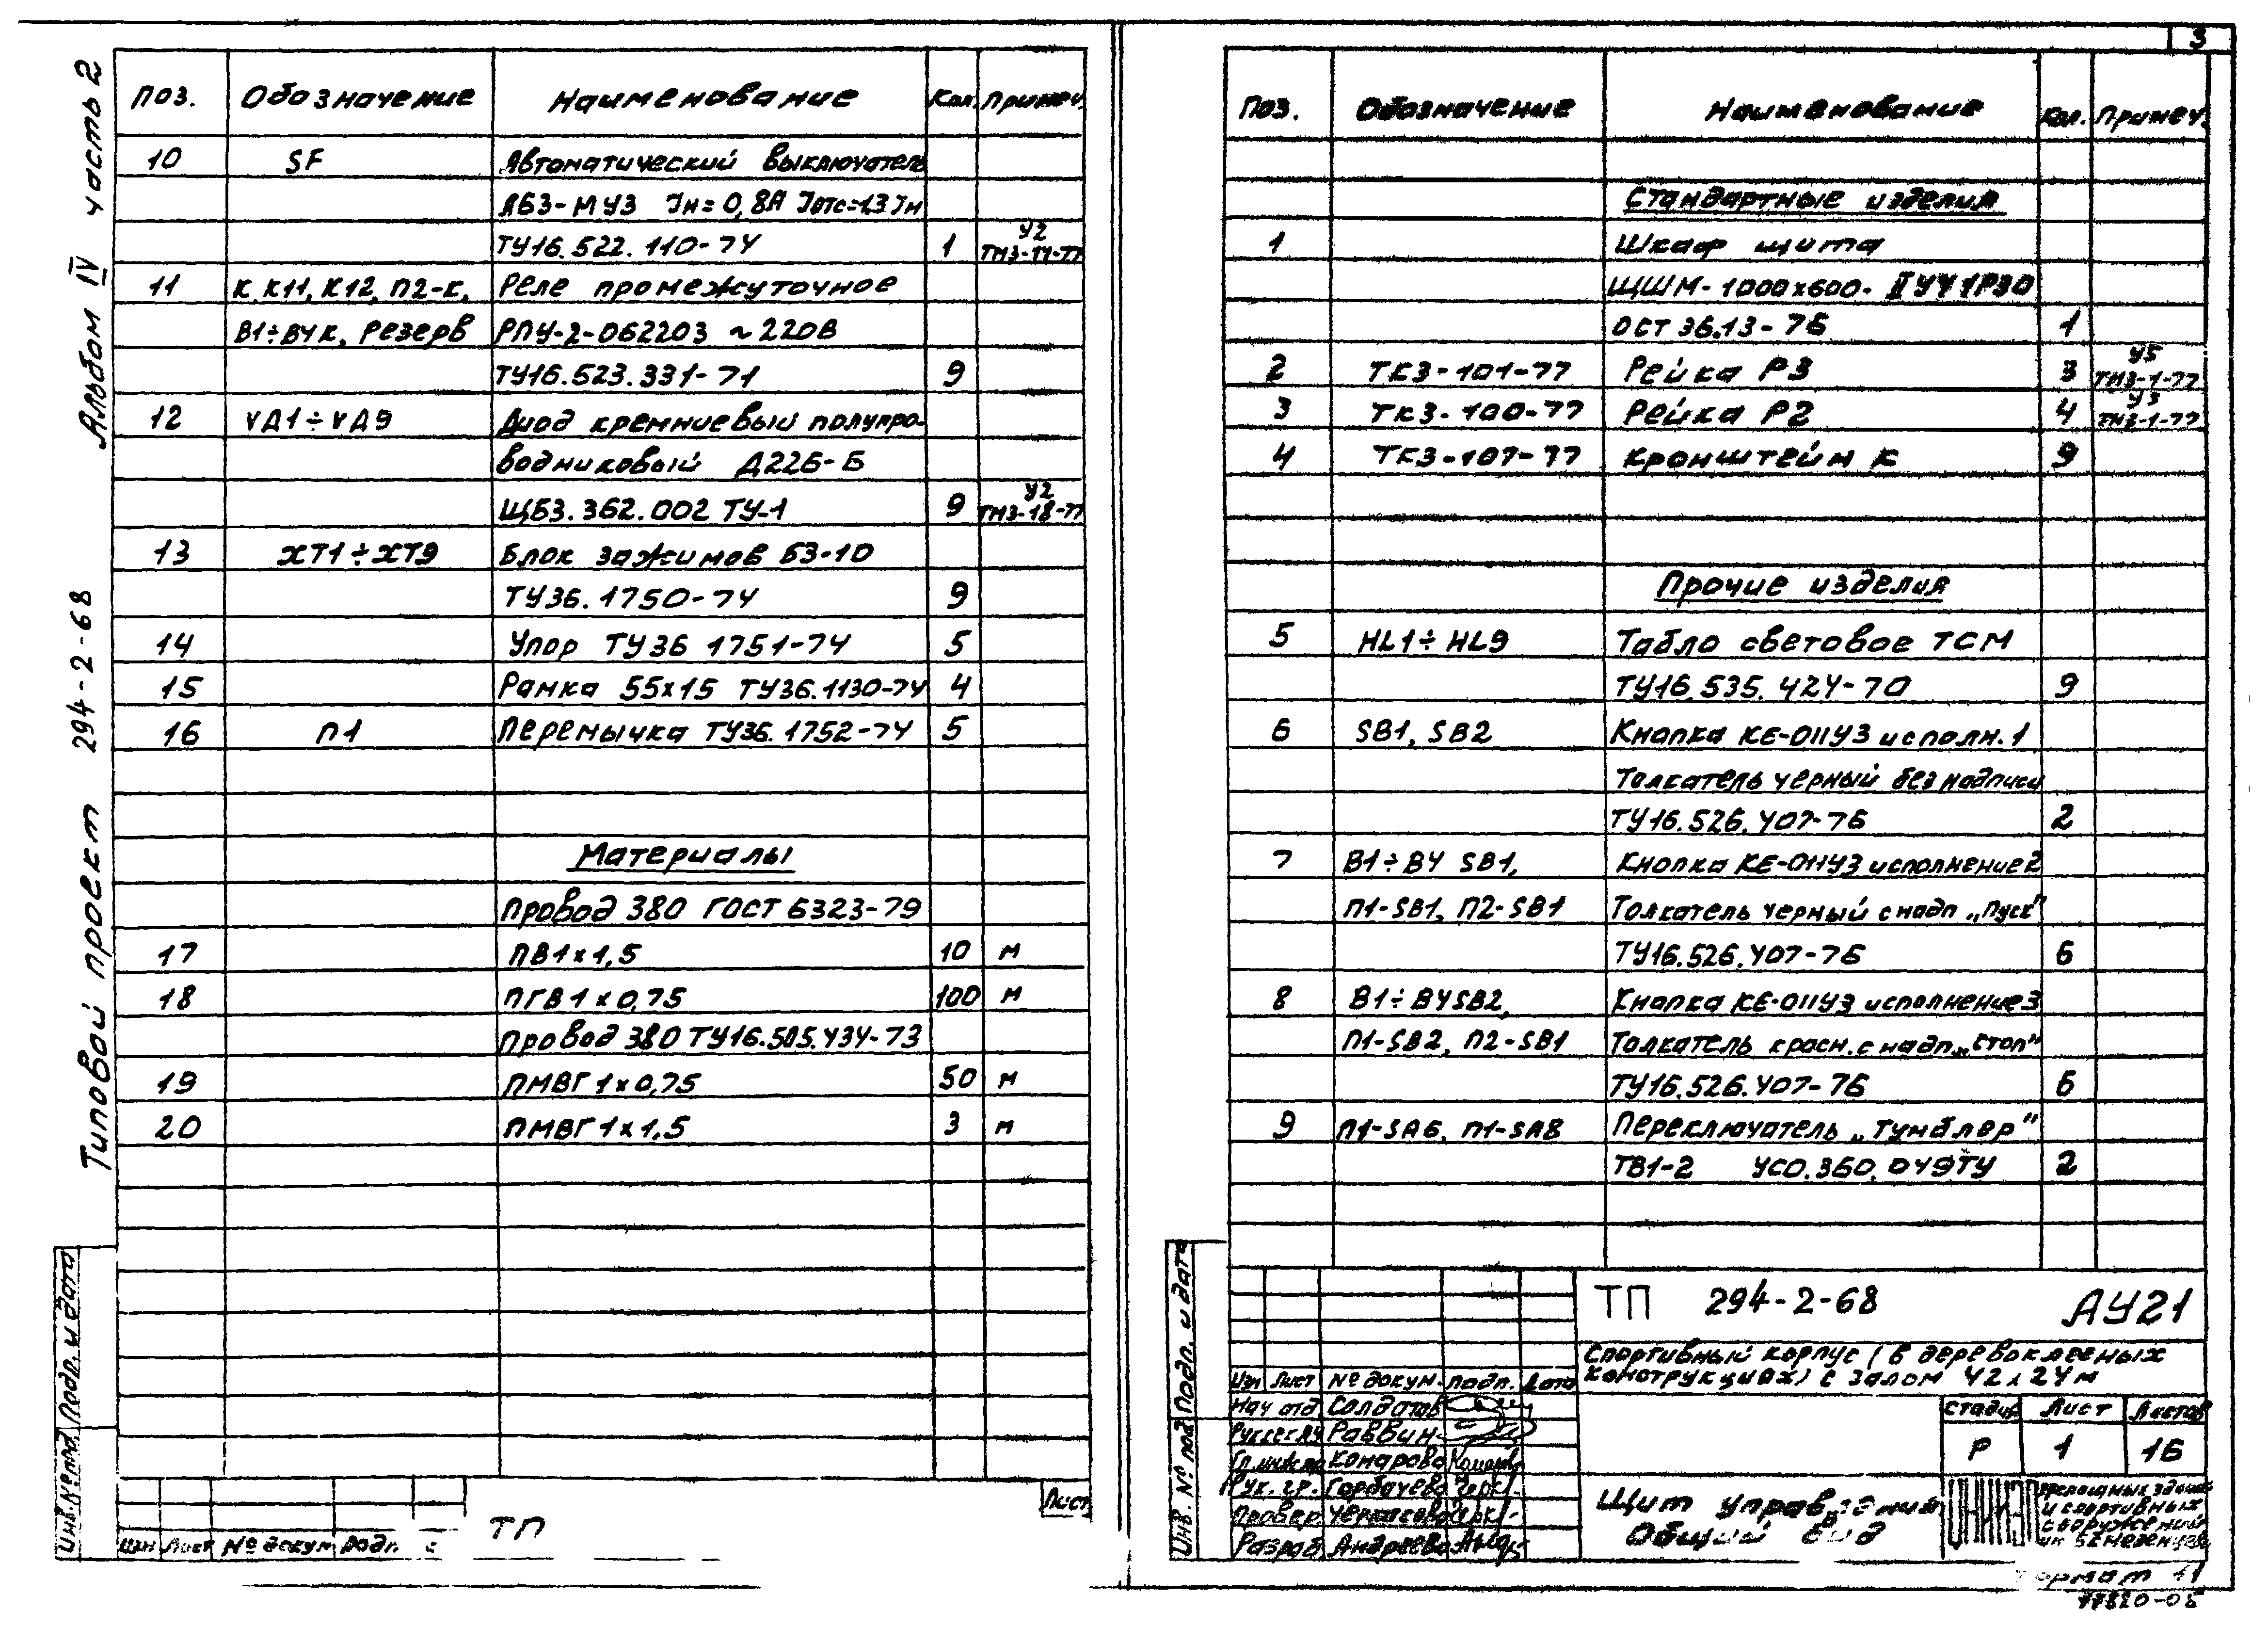 Типовой проект 294-2-68 Альбом IV часть 2
Поз. Обозначение Наименование Кол. Примеч.
10 SF Автоматический выключатель
АБ3-МУ3 Iн=0,8А Iотс=1,3Iн
ТУ16.522.110-74 1 У2
ТМ3-14-77
11 К, К11, К12, П2-К, Реле промежуточное
В1÷В4К, Резерв РПУ-2-062203 ~220В
ТУ16.523.331-71 9
12 VД1÷VД9 Диод кремниевый полупро-
водниковый Д226-Б
ЩБ3.362.002 ТУ-1 9 У2
ТМ3-18-77
13 ХТ1÷ХТ9 Блок зажимов БЗ-10
ТУ36.1750-74 9
14 Упор ТУ36 1751-74 5
15 Рамка 55х15 ТУ36.1130-74 4
16 П1 Перемычка ТУ36.1752-74 5
Материалы
Провод 380 ГОСТ 6323-79
17 ПВ1х1,5 10 м
18 ПГВ1х0,75 100 м
Провод 380 ТУ16.505.434-73
19 ПМВГ1х0,75 50 м
20 ПМВГ1х1,5 3 м
Инв.№ подл. Подп. и дата
Изм Лист № докум Подп.
ТП
Лист
3
Поз. Обозначение Наименование Кол. Примеч.
Стандартные изделия
1 Шкаф щита
ЩШМ-1000х600-IIУ4 1Р30
ОСТ 36.13-76 1
2 ТК3-101-77 Рейка Р3 3 У5
ТМ3-1-77
3 ТК3-100-77 Рейка Р2 4 У3
ТМ3-1-77
4 ТК3-107-77 Кронштейн К 9
Прочие изделия
5 HL1÷HL9 Табло световое ТСМ
ТУ16.535.424-70 9
6 SB1, SB2 Кнопка КЕ-011У3 исполн.1
Толкатель черный без надписи
ТУ16.526.407-76 2
7 В1÷В4 SB1, Кнопка КЕ-011У3 исполнение 2
П1-SB1, П2-SB1 Толкатель черный с надп „Пуск"
ТУ16.526.407-76 6
8 В1÷В4SB2, Кнопка КЕ-011У3 исполнение 3
П1-SB2, П2-SB1 Толкатель красн. с надп. „Стоп"
ТУ16.526.407-76 6
9 П1-SA6, П1-SA8 Переключатель „Тумблер"
ТВ1-2 УС0.360.049ТУ 2
Инв. № под Подп. и дата
ТП 294-2-68 АУ21
Спортивный корпус (в деревоклееных
конструкциях) с залом 42х24м
Изм Лист № докум. Подп. Дата
Нач отд Солдатов
Раввин
Гл.инж.пр Комарова
Рук. гр. Горбачева
Провер. Черкасова
Разраб Андреева
Стадия Лист Листов
Р 1 16
Щит управления
Общий вид
зрелищных зданий
и спортивных
сооружений
им Б.Мезенцева
Формат 11